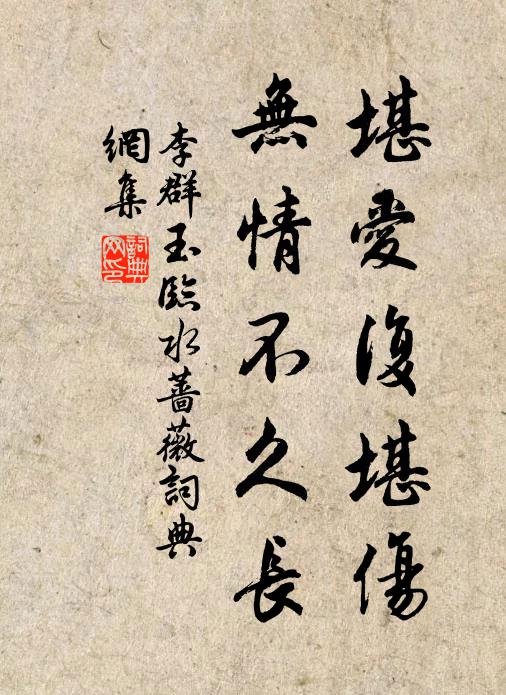 堪愛復堪傷
無情不久長
李群玉臨水薔薇詞典
網集
詞典
网印